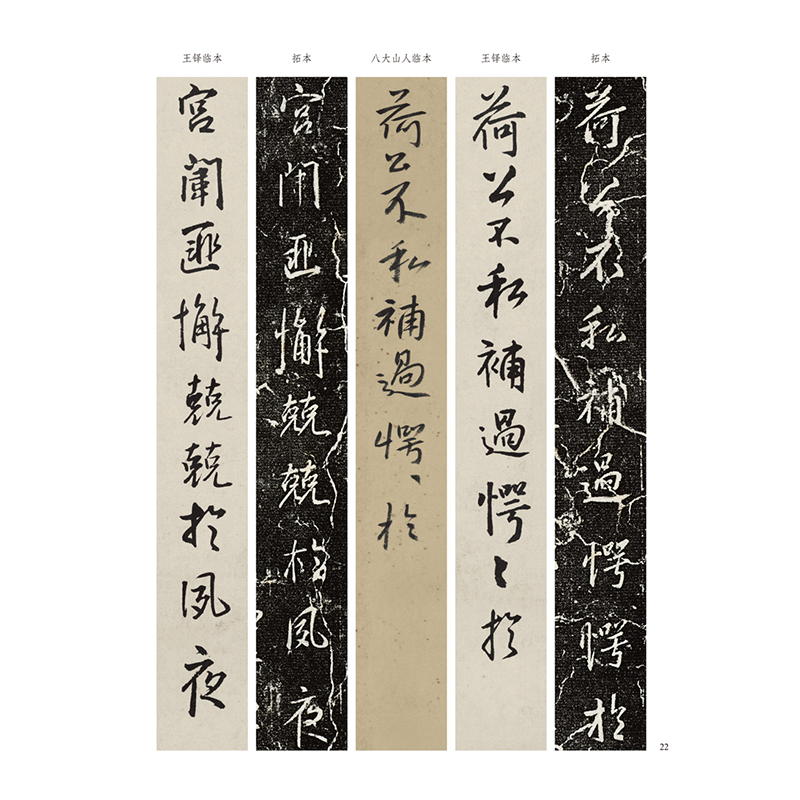 拓本
荷公不私補過愕愕於
王铎临本
荷公不私補過愕〻於
八大山人临本
荷公不私補過愕〻於
拓本
宮闈匪懈兢兢於夙夜
王铎临本
宮闈匪懈兢兢於夙夜
22